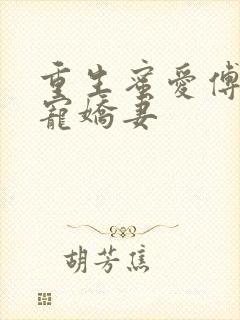 重生蜜愛傅
寵嬌妻
胡芳焦